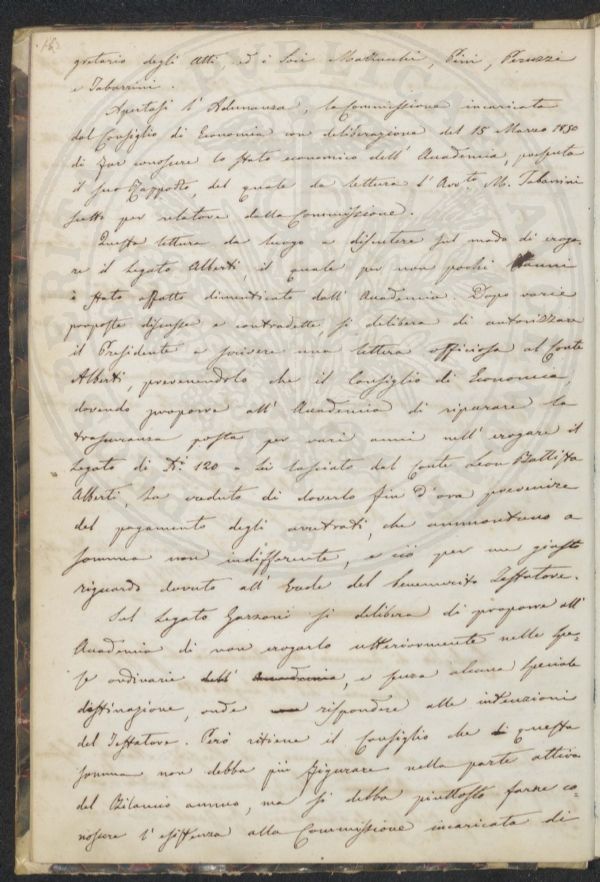 183
gretario degli Atti, ed i Socj Matteucci, Pini, Peruzzi
e Tabarrini.
Apertasi l'Adunanza, la Commissione incaricata
dal Consiglio di Economia con deliberazione del 15 Marzo 1850
di far conoscere lo stato economico dell'Accademia, presenta
il suo Rapporto, del quale da lettura l'Avv.to M. Tabarrini
scelto per relatore dalla Commissione.
Questa lettura da luogo a discutere sul modo di eroga-
re il Legato Alberti, il quale per non pochi anni
è stato affatto dimenticato dall'Accademia. Dopo varie
proposte discusse e contradette si delibera di autorizzare
il Presidente a scrivere una lettera officiosa al Conte
Alberti, prevenendolo che il Consiglio di Economia,
dovendo proporre all'Accademia di riparare la
trascuranza posta per vari anni nell'erogare il
Legato di 120 a Lei lasciato dal Conte Leon Battista
Alberti, ha creduto di doverlo fin d'ora prevenire
del pagamento degli arretrati, che ammontano a
somma non indifferente, e ciò per un giusto
riguardo dovuto all'Erede del benemerito Testatore.
Sul Legato Garzoni si delibera di proporre all'
Accademia di non erogarlo ulteriormente nelle spe-
se ordinarie dell'Accademia, e senza alcuna speciale
destinazione, onde rispondere alle intenzioni
del Testatore. Però ritiene il Consiglio che di questa
somma non debba più figurare nella parte attiva
del Bilancio annuo, ma si debba piuttosto farne co-
noscere l'esistenza alla Commissione incaricata di